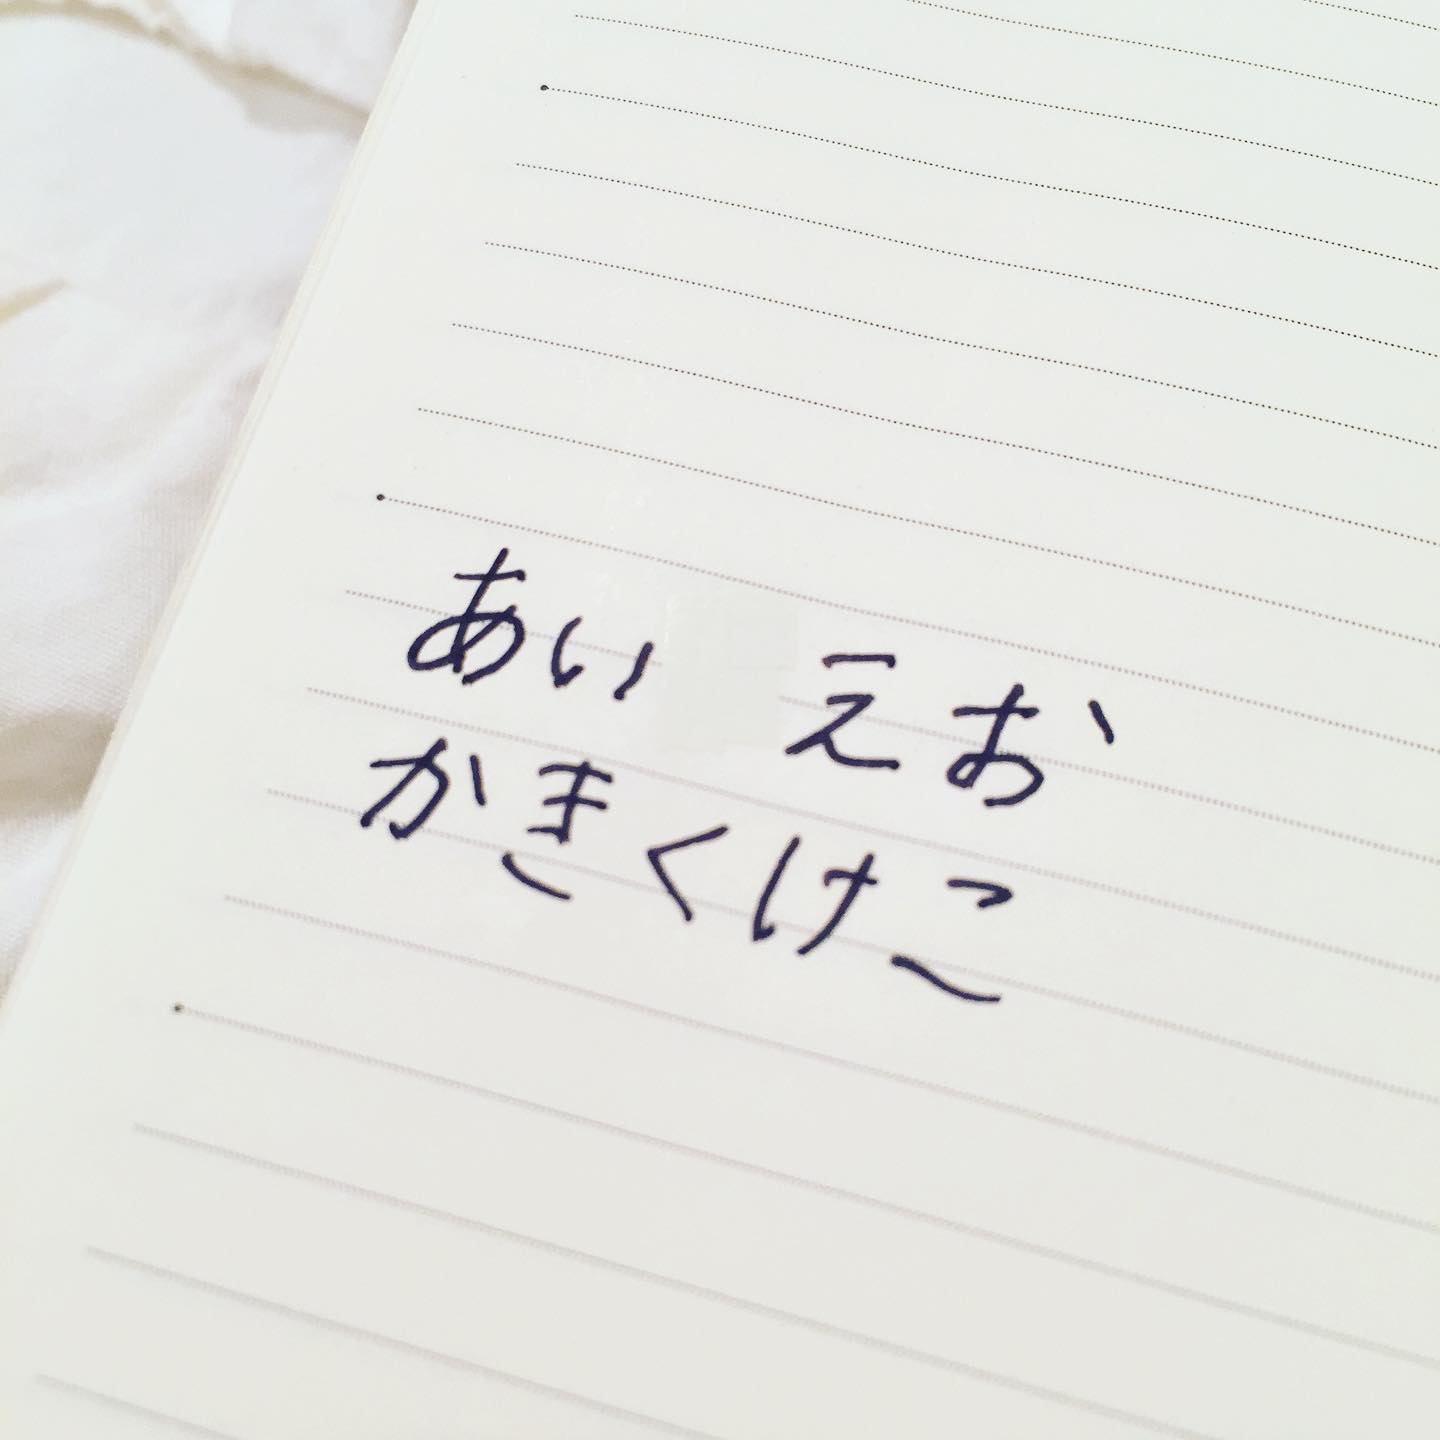 あい えお
かきくけこ